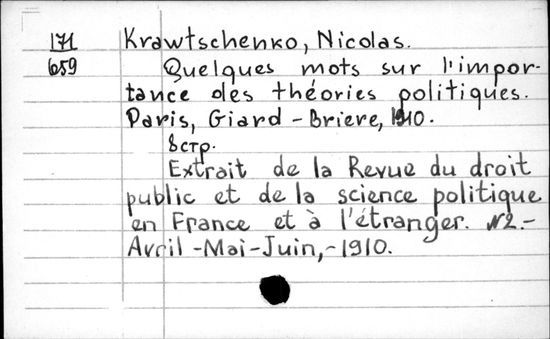 171
659
Krawtschenko, Nicolas.
Quelques mots sur l'impor-
tance des théories politiques.
Paris, Giard - Briere, 1910.
8 стр.
Extrait de la Revue du droit
public et de la science politique
en France et à l'étranger. №2.-
Avril - Mai - Juin, - 1910.